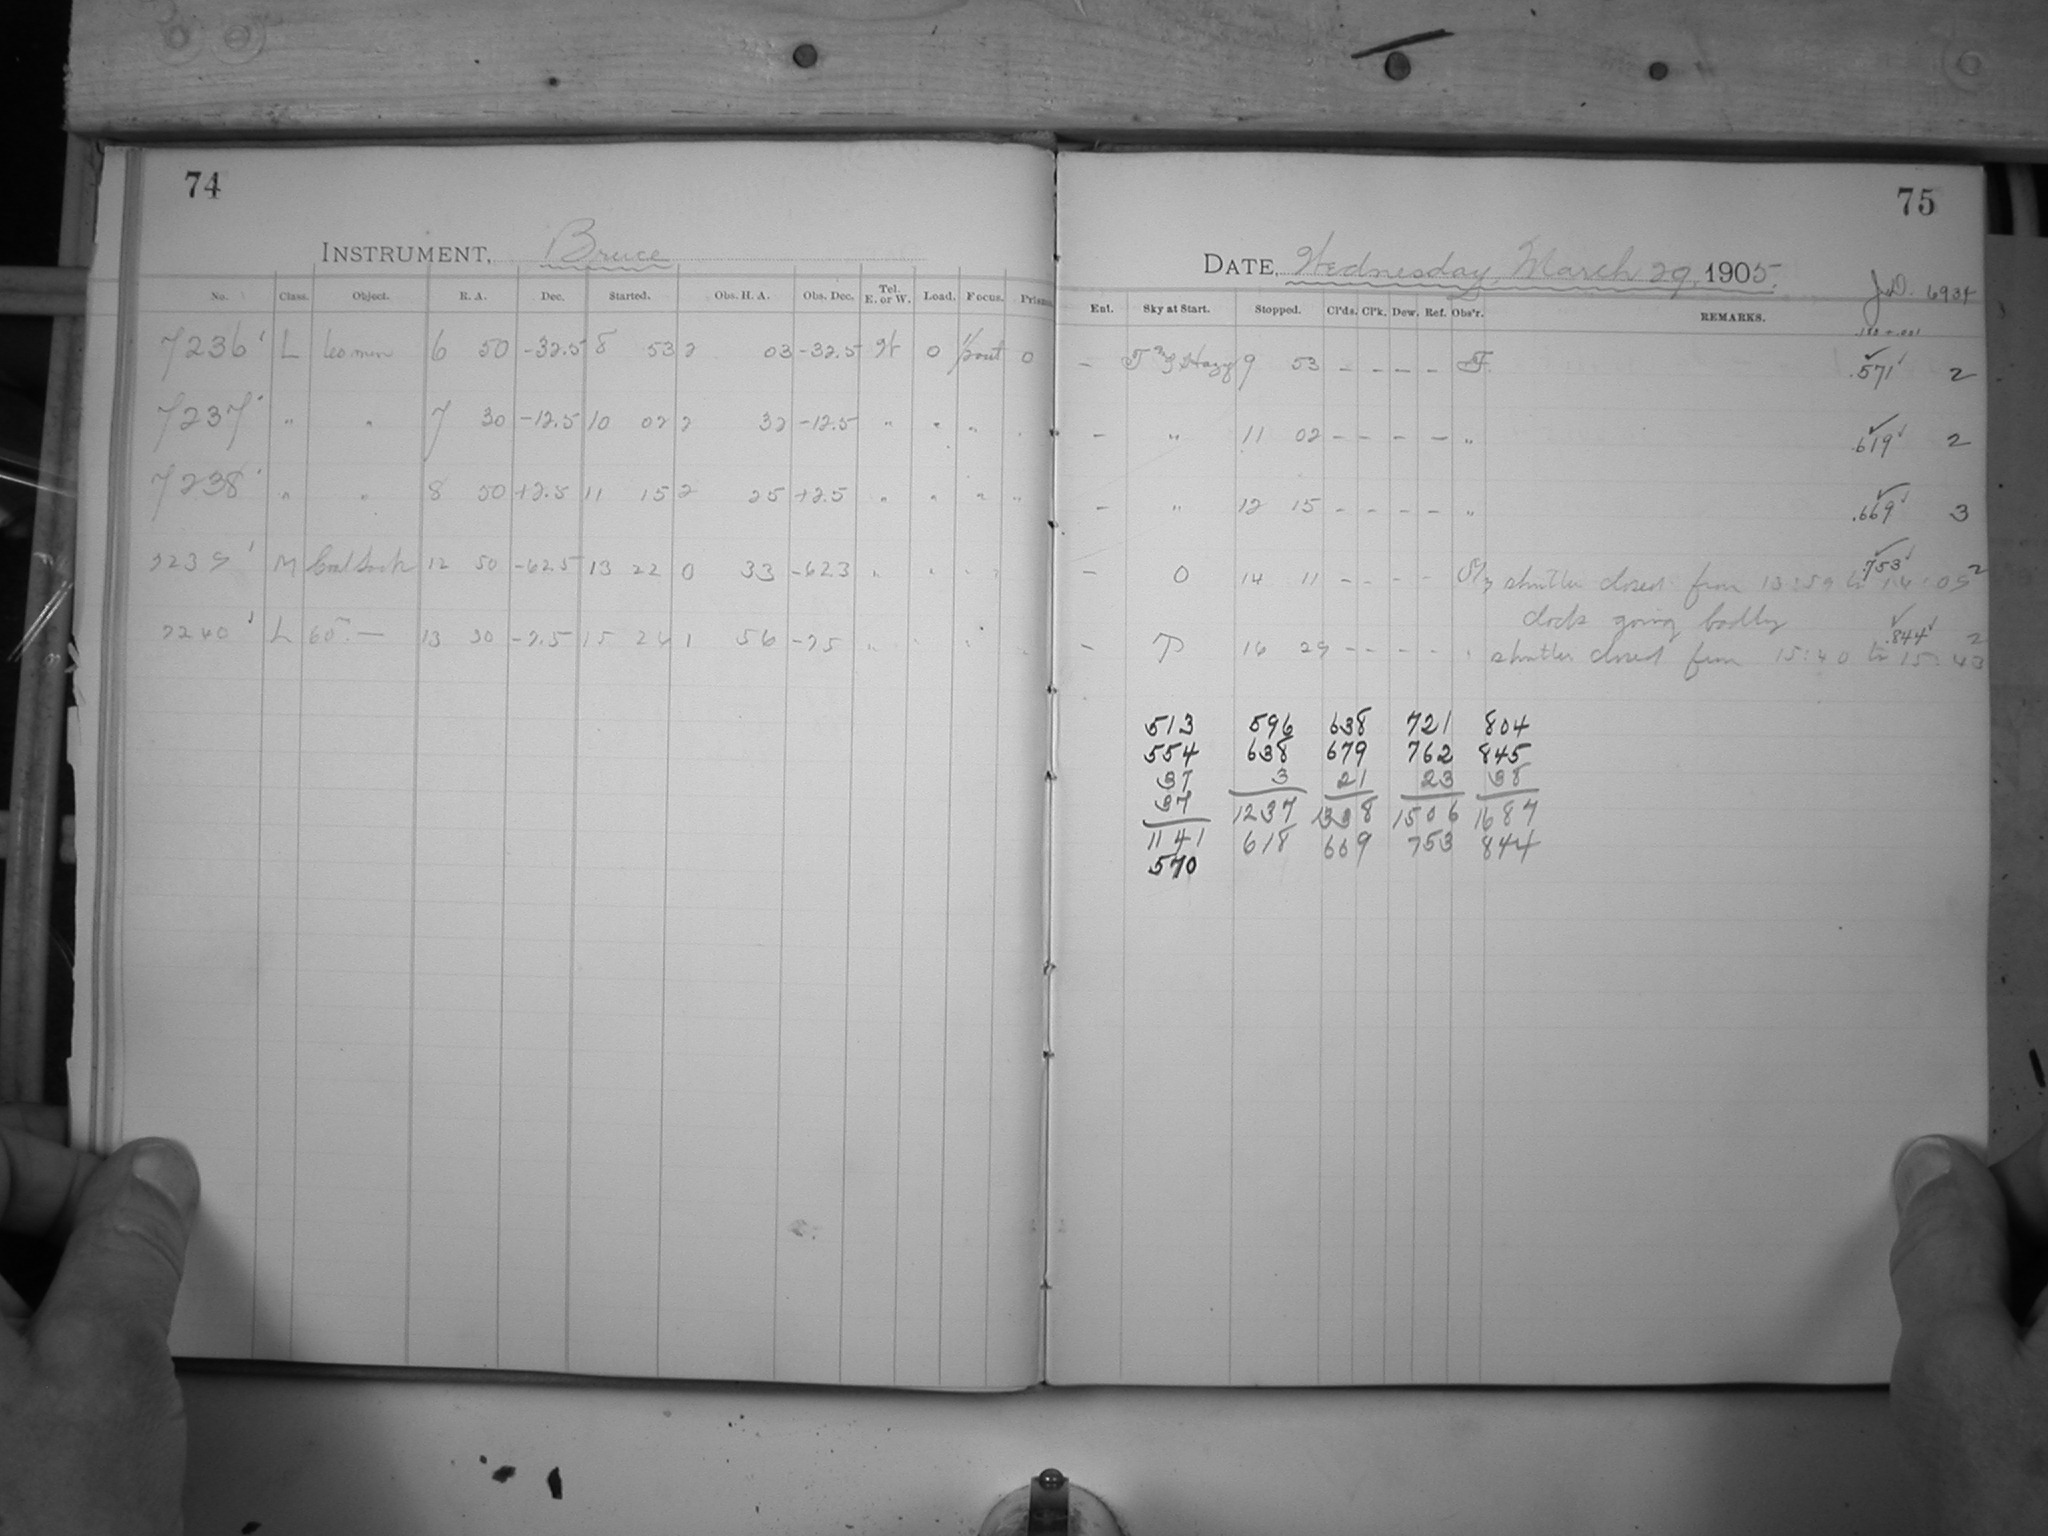 74
INSTRUMENT, Bruce
No. Class. Object. R. A. Dec. Started. Obs. H. A. Obs. Dec. Tel. E. or W. Load. Focus. Prism
7236 L 60 min 6 50 -32.5 8 53 2 03 -32.5 W 0 0
7237 " " 7 30 -12.5 10 02 2 32 -12.5 " " "
7238 " " 8 50 +2.5 11 15 2 25 +2.5 " " " "
7239 M Coal Sack 12 50 -62.5 13 22 0 33 -62.3 " " "
7240 L 60 — 13 30 -2.5 15 26 1 56 -2.5 " " "
75
DATE, Wednesday, March 29, 1905. J.D. 6934
Ent. Sky at Start. Stopped. Cl'ds. Cl'k. Dew. Ref. Obs'r. REMARKS.
- Hazy 9 53 - - - - F. .571 2
- " 11 02 - - - - " .619 2
- " 12 15 - - - - " .669 3
- 0 14 11 - - - - shutter closed from 13:59 to 14:05 .753 2
clock going badly
- 16 29 - - - - shutter closed from 15:40 to 15:43 .844 2
513 596 638 721 804
554 638 679 762 845
37 3 21 23 38
37 1237 1338 1506 1687
1141 618 669 753 844
570